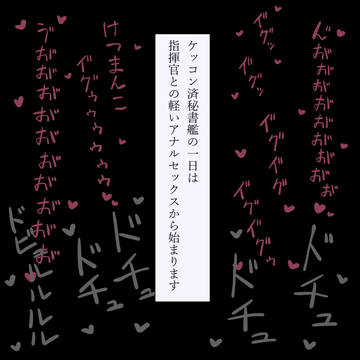 ドチュ
イグッ
イグッ
イグイグ
イグイグゥ
ドチュ
ケッコン済秘書艦の一日は
指揮官との軽いアナルセックスから始まります
ドチュ
けつまんこ
イグゥゥゥゥゥ
ドチュ
ドビュルルルル